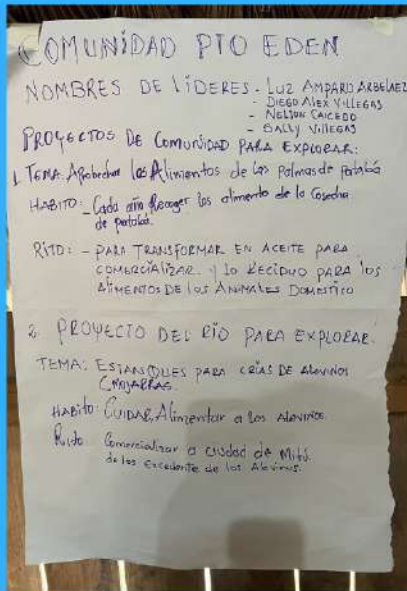 COMUNIDAD PTO EDEN
NOMBRES DE LIDERES - LUZ AMPARO ARBELAEZ
- DIEGO ALEX VILLEGAS
- NELSON CAICEDO
- SALLY VILLEGAS
PROYECTOS DE COMUNIDAD PARA EXPLORAR:
1. TEMA: Aprobechar los Alimentos de las Palmas de patabá
HABITO: - Cada año Recoger los alimento de la Cosecha
de patabá.
RITO: - PARA TRANSFORMAR EN ACEITE PARA
COMERCIALIZAR. y lo RECIDUO PARA los
AlIMENTOS DE los ANIMALES DOMESTICO
2. PROYECTO DEL RÍO PARA EXPLORAR.
TEMA: ESTANQUES PARA CRÍAS DE Alevinos
CMOJARRAS.
HABITO: CUIDAR, Alimentar a los Alevinos.
Rito Comercializar a ciudad de Mitú.
de los Excedente de los Alevinos.